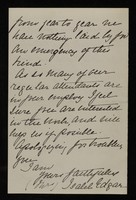 from year to year we
have nothing laid by for
an emergency of this
kind.
As so many of our
regular attendants are
in your employ I feel
sure you are interested
in the work, and will
help us if possible.
Apologising for troubling
you
I am
Yours faithfully
(Mrs) Isabel Edgar